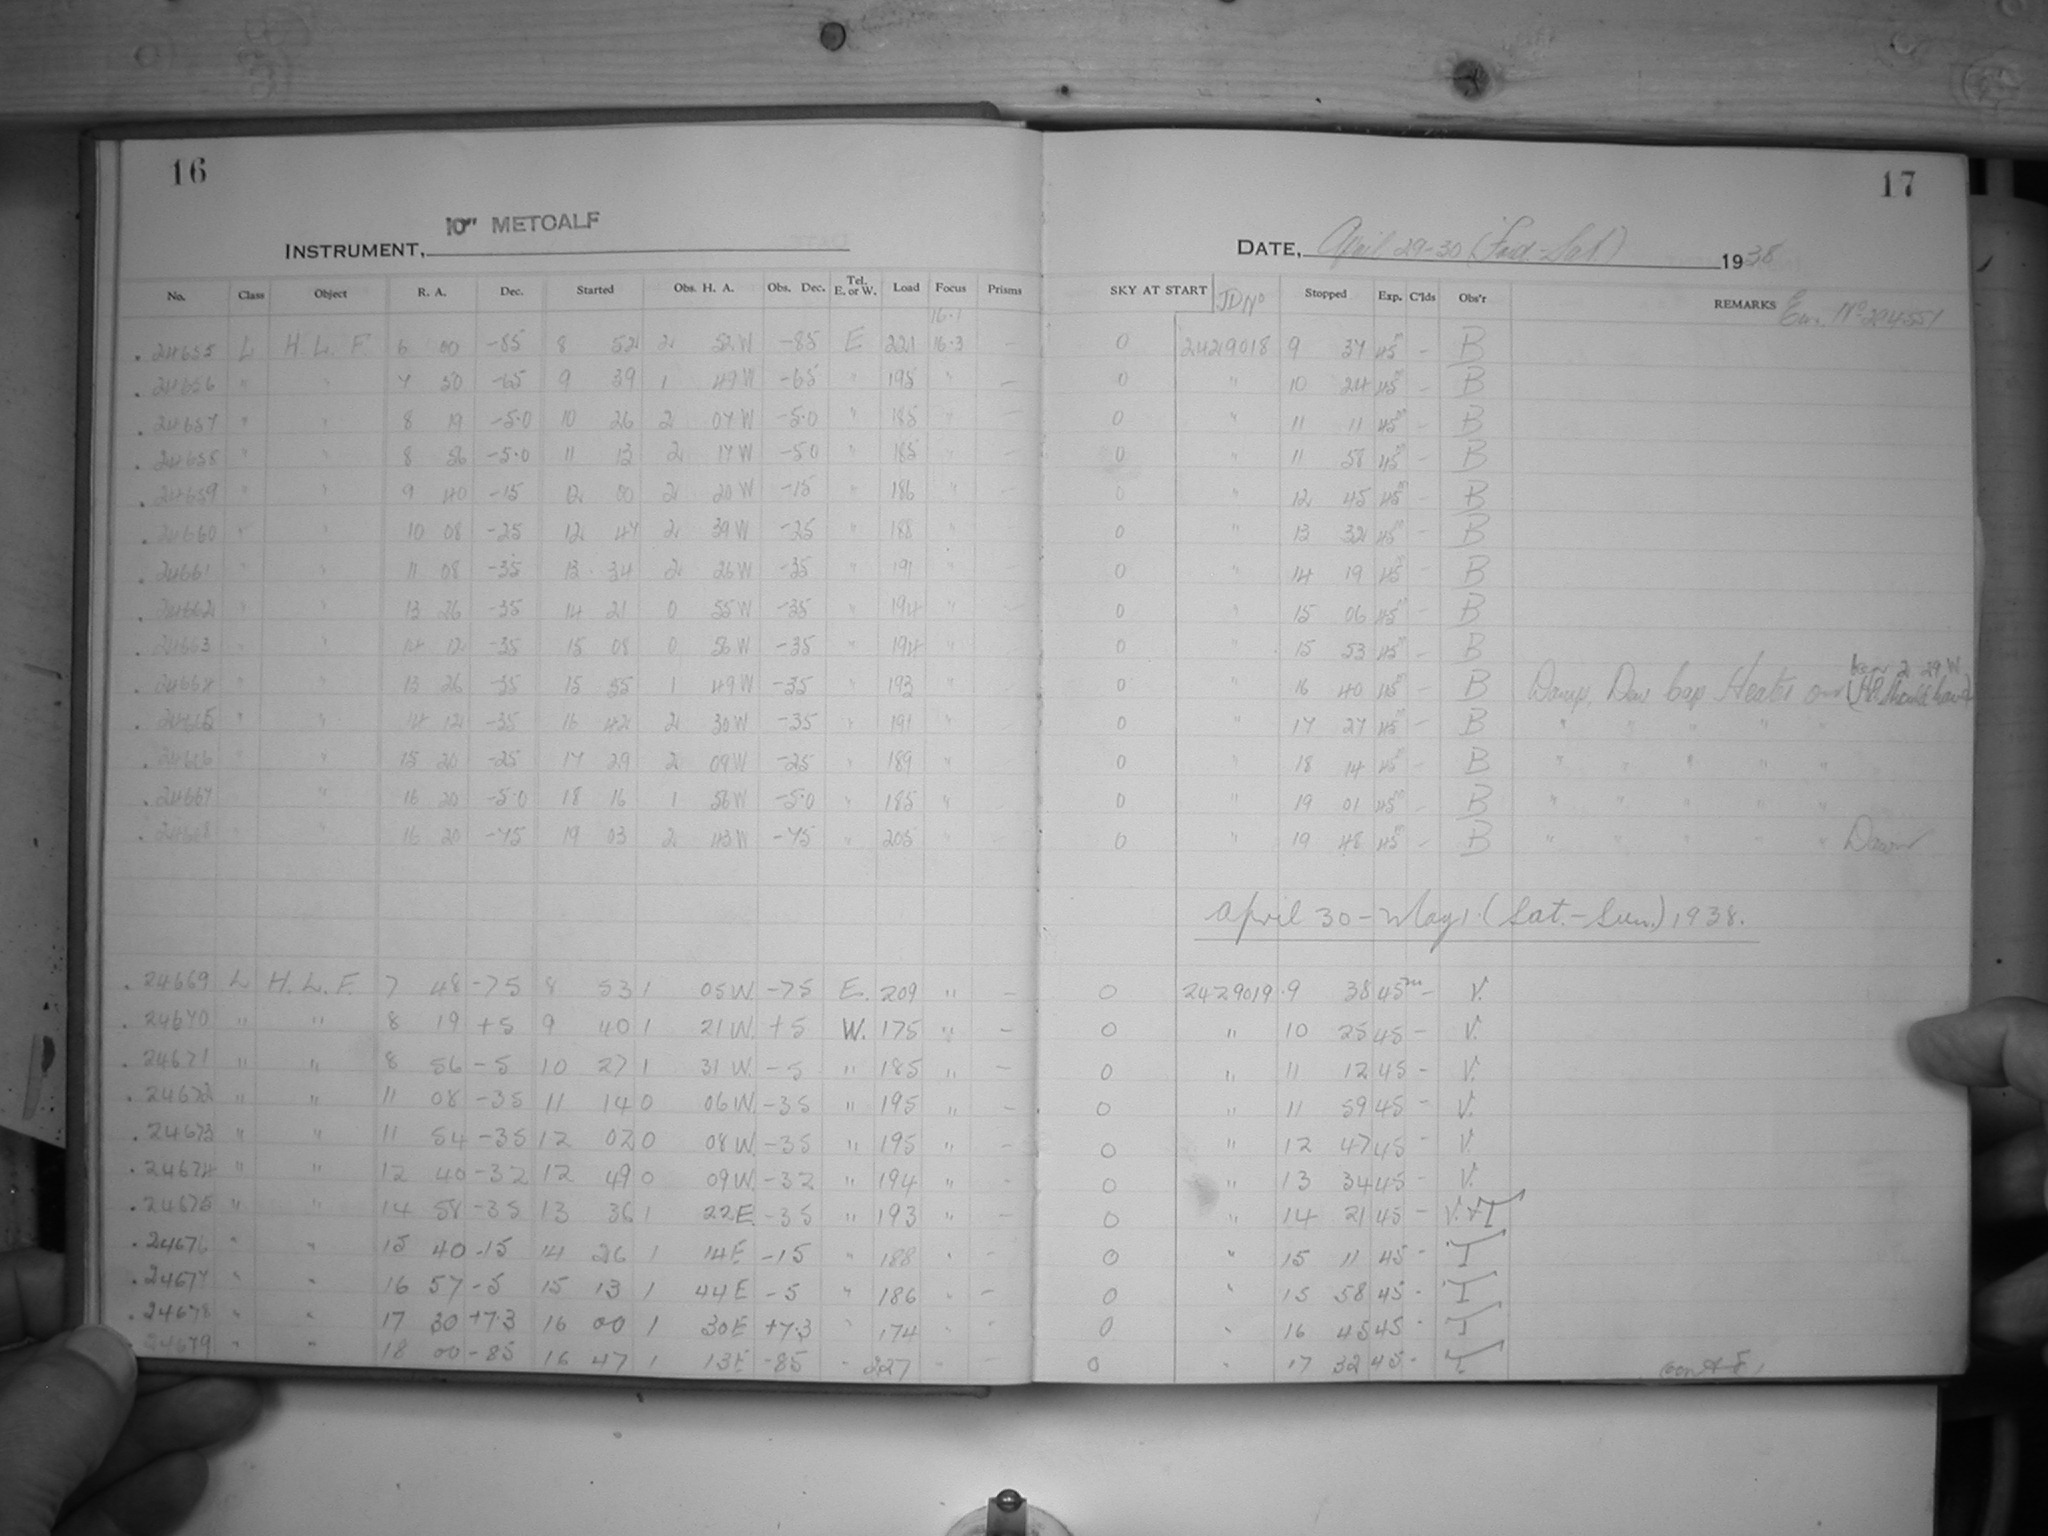 16
17
10" METCALF
INSTRUMENT,
DATE, April 29-30 (Frid-Sat) 1938
No. Class Object R. A. Dec. Started Obs. H. A. Obs. Dec. Tel. E. or W. Load Focus Prisms SKY AT START JD No Stopped Exp. C'lds Obs'r REMARKS Em. No
16.1
24655 L H. L. F. 6 00 -85 8 52 2 52W -85 E 221 16.3 - 0 2429018 9 37 45m - B
24656 " " 7 50 -65 9 39 1 49W -65 " 195 " - 0 " 10 24 45m - B
24657 " " 8 19 -5.0 10 26 2 07W -5.0 " 185 " - 0 " 11 11 45m - B
24658 " " 8 56 -5.0 11 13 2 17W -5.0 " 185 " - 0 " 11 58 45m - B
24659 " " 9 40 -15 12 00 2 20W -15 " 186 " - 0 " 12 45 45m - B
24660 " " 10 08 -25 12 47 2 39W -25 " 188 " - 0 " 13 32 45m - B
24661 " " 11 08 -35 13 34 2 26W -35 " 191 " - 0 " 14 19 45 - B
24662 " " 13 26 -35 14 21 0 55W -35 " 194 " - 0 " 15 06 45m - B
24663 " " 14 12 -35 15 08 0 56W -35 " 194 " - 0 " 15 53 45m - B
24664 " " 13 26 -35 15 55 1 49W -35 " 193 " - 0 " 16 40 45m - B Damp, Dew Cap Heater on (HA should have been 2 29 W)
24665 " " 14 12 -35 16 42 2 30W -35 " 191 " - 0 " 17 27 45m - B " " " " "
24666 " " 15 20 -25 17 29 2 09W -25 " 189 " - 0 " 18 14 45m - B " " " " "
24667 " 16 20 -5.0 18 16 1 56W -5.0 " 185 " - 0 " 19 01 45m - B " " " " "
24668 " 16 20 -75 19 03 2 43W -75 " 205 " - 0 " 19 48 45m - B " " " " " Dawn
April 30-May 1. (Sat.-Sun.) 1938.
24669 L H. L. F. 7 48 -75 8 53 1 05W. -75 E. 209 " - 0 2429019. 9 38 45m - V.
24670 " " 8 19 +5 9 40 1 21W. +5 W. 175 " - 0 " 10 25 45 - V.
24671 " " 8 56 -5 10 27 1 31W. -5 " 185 " - 0 " 11 12 45 - V.
24672 " " 11 08 -35 11 14 0 06W. -35 " 195 " - 0 " 11 59 45 - V.
24673 " " 11 54 -35 12 02 0 08W. -35 " 195 " - 0 " 12 47 45 - V.
24674 " " 12 40 -32 12 49 0 09W. -32 " 194 " - 0 " 13 34 45 - V.
24675 " " 14 58 -35 13 36 1 22E. -35 " 193 " - 0 " 14 21 45 - V. + T
24676 " " 15 40 -15 14 26 1 14E -15 " 188 " - 0 " 15 11 45 - T
24677 " " 16 57 -5 15 13 1 44E -5 " 186 " - 0 " 15 58 45 - T
24678 " " 17 30 +7.3 16 00 1 30E +7.3 " 174 " - 0 " 16 45 45 - T
24679 " " 18 00 -85 16 47 1 13E -85 " 227 " - 0 " 17 32 45 - T
cont'd